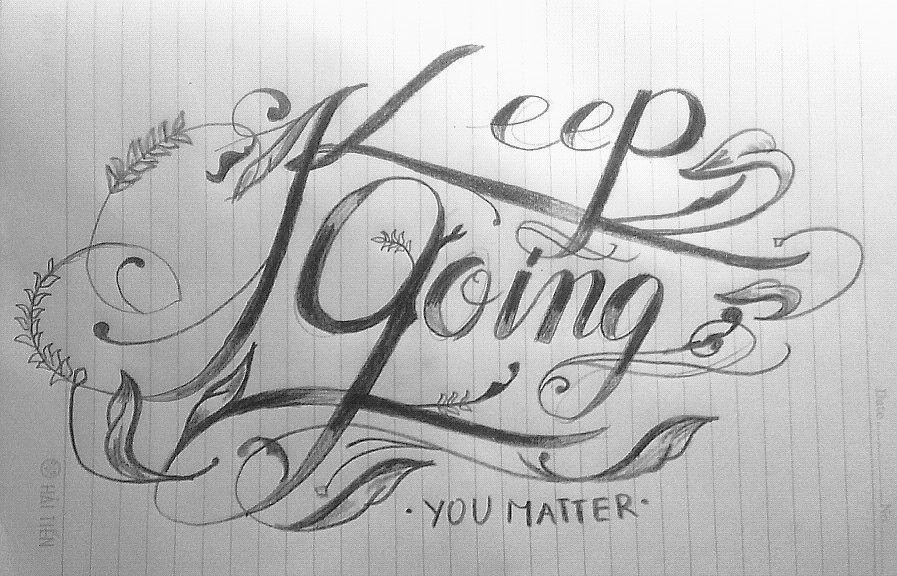 Keep
Going
• YOU MATTER •
HẢI TIẾN
Date
No.